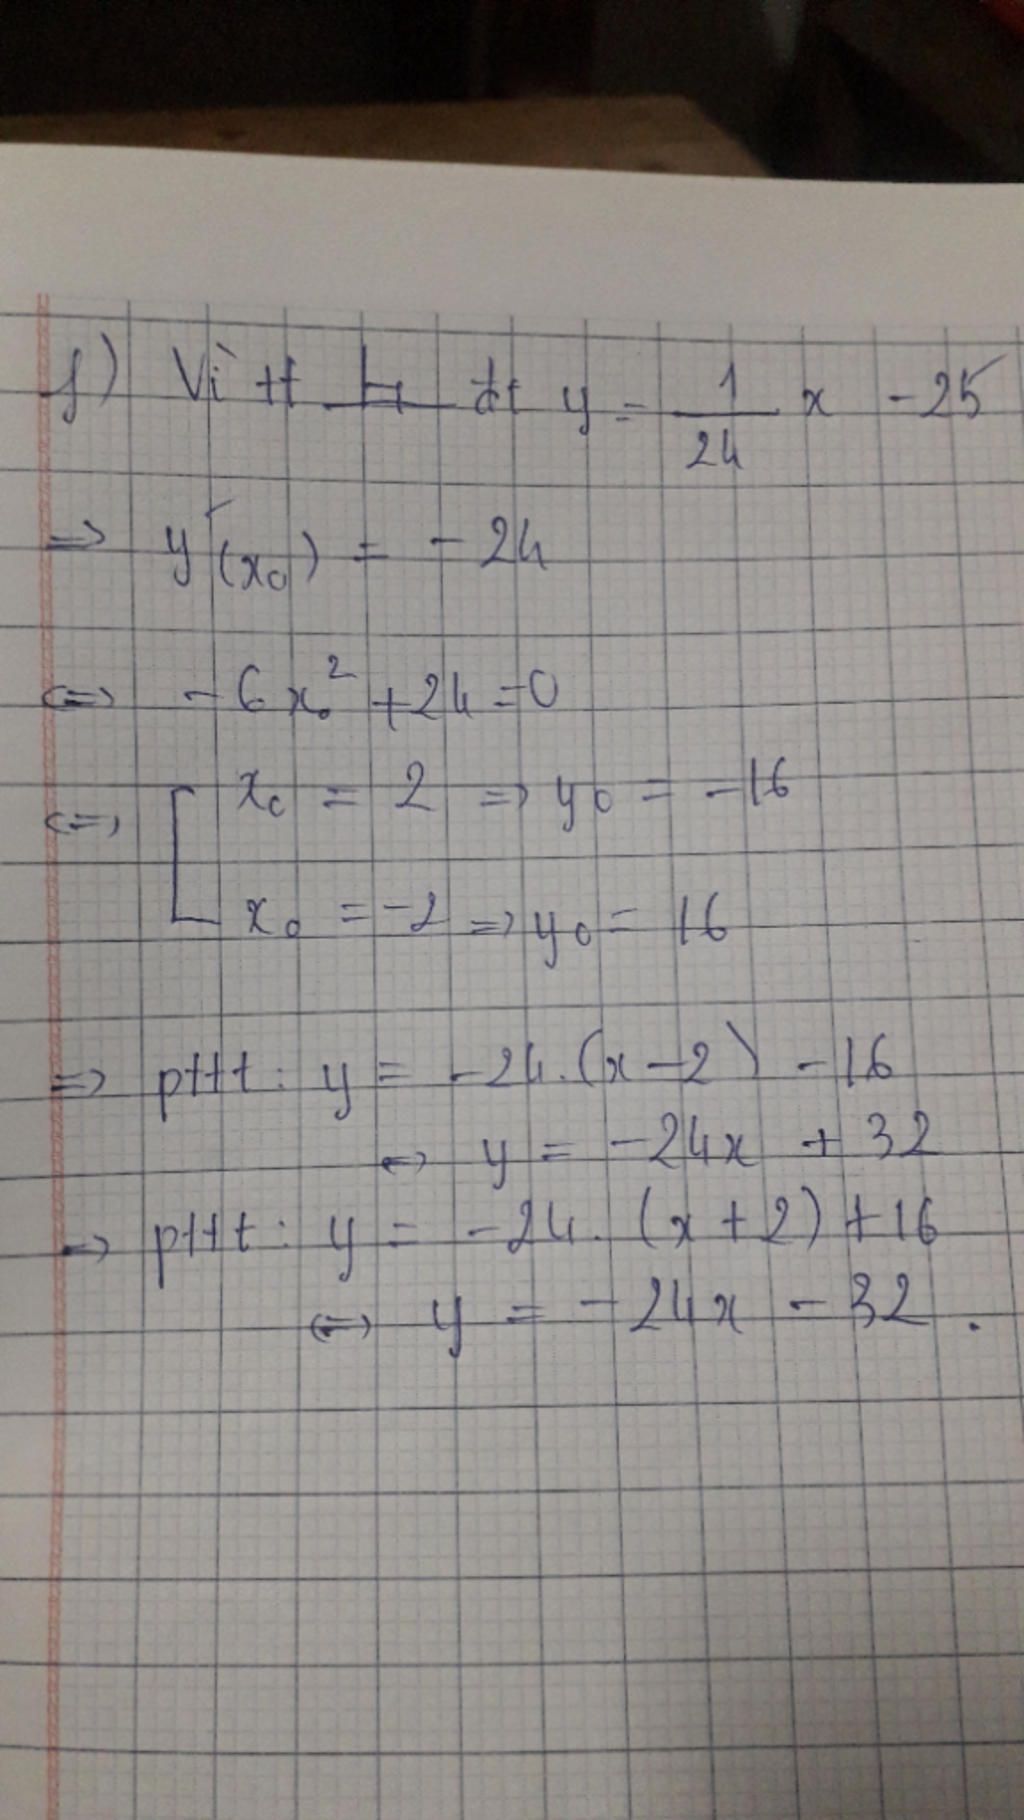 f) Vì tt ⊥ đt y = 1/24 x - 25
=> y'(x₀) = - 24
<=> - 6x₀² + 24 = 0
<=> [ x₀ = 2 => y₀ = - 16
x₀ = - 2 => y₀ = 16
=> pttt : y = - 24.(x - 2) - 16
<=> y = - 24x + 32
=> pttt : y = - 24. (x + 2) + 16
<=> y = - 24x - 32 .